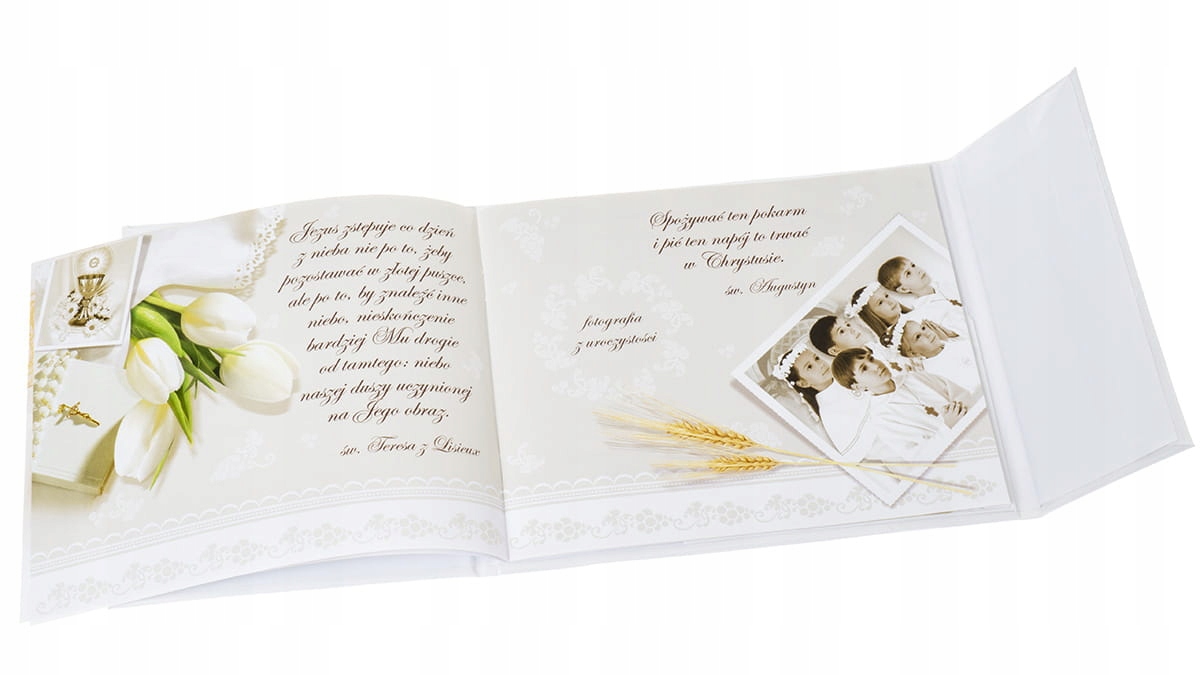 Jezus zstępuje co dzień
z nieba nie po to, żeby
pozostawać w złotej puszce,
ale po to, by znaleźć inne
niebo, nieskończenie
bardziej Mu drogie
od tamtego: niebo
naszej duszy uczynionej
na Jego obraz.
św. Teresa z Lisieux
Spożywać ten pokarm
i pić ten napój to trwać
w Chrystusie.
św. Augustyn
fotografia
z uroczystości